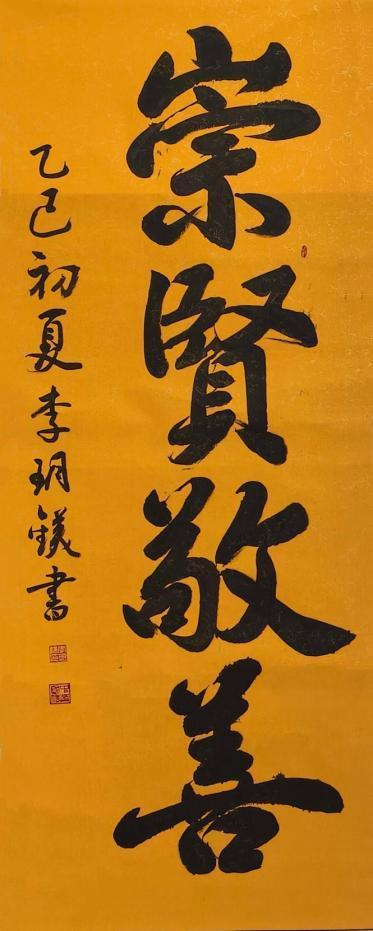 崇賢敬善
乙巳初夏李玥鋑書